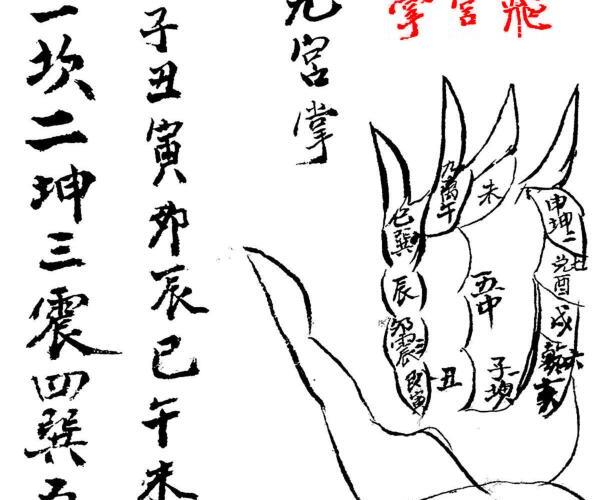 飛
宮
掌
九宮掌
子丑寅卯辰巳午未
一坎二坤三震四巽五
巳巽
九离午
未
申坤二
七兌酉
戌
六乾亥
辰
卯震三
艮寅
丑
五中
子一坎